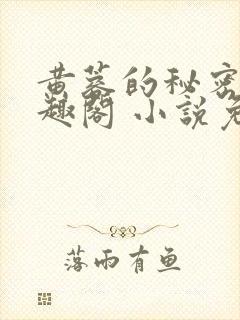 黄蓉的秘密
趣阁 小说免
落雨有鱼